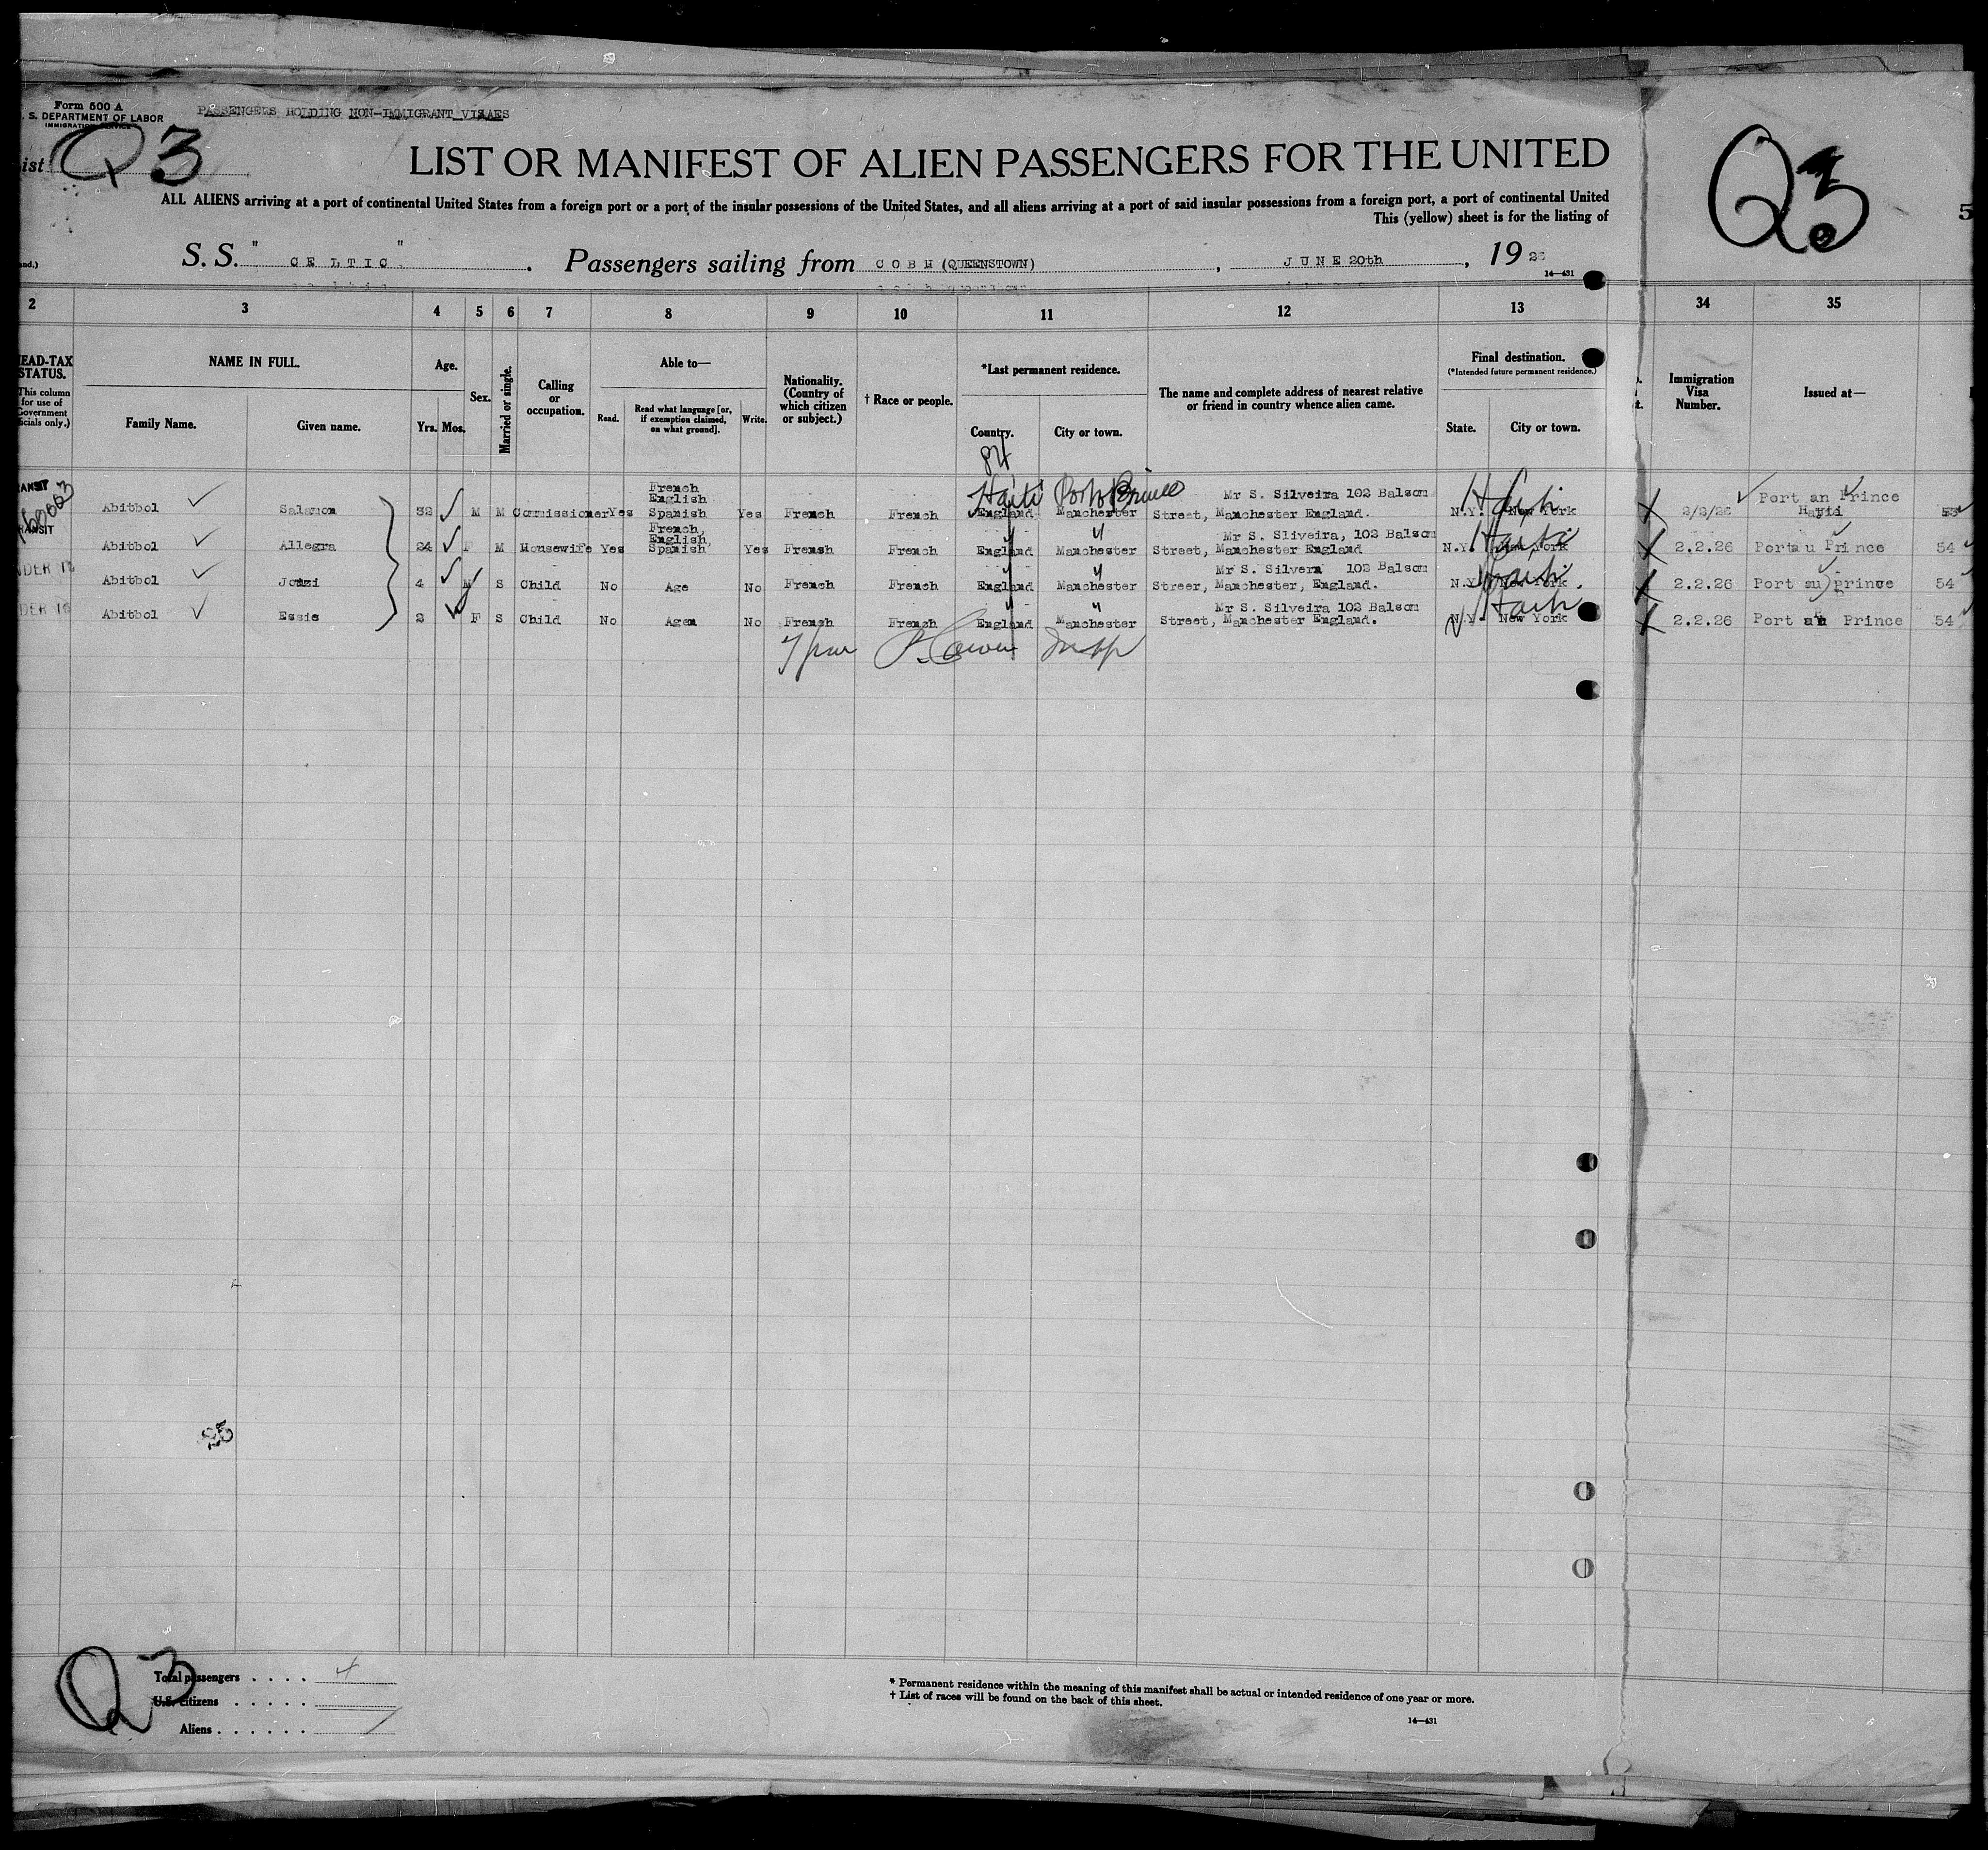 Form 500 A
S. DEPARTMENT OF LABOR
IMMIGRATION SERVICE
PASSENGERS HOLDING NON-IMMIGRANT VISAES
ist Q 3
LIST OR MANIFEST OF ALIEN PASSENGERS FOR THE UNITED
Q3
ALL ALIENS arriving at a port of continental United States from a foreign port or a port of the insular possessions of the United States, and all aliens arriving at a port of said insular possessions from a foreign port, a port of continental United
This (yellow) sheet is for the listing of
5
and.)
S. S. " CELTIC " . Passengers sailing from COBH (QUEENSTOWN) , JUNE 20th , 19 26
14—431
2 3 4 5 6 7 8 9 10 11 12 13 34 35
EAD-TAX STATUS.
This column for use of Government officials only.)
NAME IN FULL.
Family Name. Given name.
Age.
Yrs. Mos.
Sex.
Married or single.
Calling or occupation.
Able to—
Read. Read what language [or, if exemption claimed, on what ground]. Write.
Nationality. (Country of which citizen or subject.)
† Race or people.
*Last permanent residence.
Country. City or town.
The name and complete address of nearest relative or friend in country whence alien came.
Final destination.
(*Intended future permanent residence.)
State. City or town.
Immigration Visa Number.
Issued at—
ANSIT
Haiti Port o Prince Haiti
Abitbol Salamon 32 M M Commissioner Yes French English Spanish Yes French French England Manchester Mr S. Silveira 102 Balsom Street, Manchester England. N.Y. New York 2/2/26 Port an Prince Hayti 53
RANSIT
Abitbol Allegra 24 F M Housewife Yes French, English, Spanish Yes French French England Manchester Mr S. Sliveira, 102 Balsom Street, Manchester England N.Y. New York Haiti 2.2.26 Port au Prince 54
NDER 16
Abitbol Jouzi 4 M S Child No Age No French French England Manchester Mr S. Silvera 102 Balsom Streer, Manchester, England. N.Y. New York Haiti 2.2.26 Port au prince 54
DER 16
Abitbol Essie 2 F S Child No Age No French French England Manchester Mr S. Silveira 102 Balsom Street, Manchester England. N.Y. New York Haiti 2.2.26 Port an Prince 54
Insp
Q 3
Total passengers . . . . 4
U.S. citizens . . . . .
Aliens . . . . . .
* Permanent residence within the meaning of this manifest shall be actual or intended residence of one year or more.
† List of races will be found on the back of this sheet.
14—431